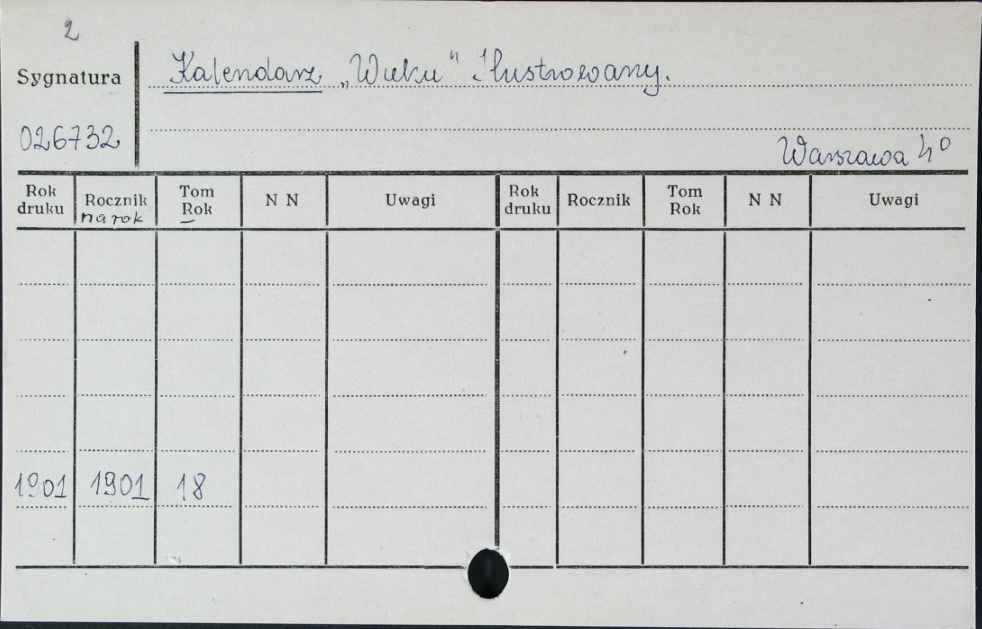 2
Sygnatura Kalendarz „Wieku" Ilustrowany.
026732
Warszawa 4°
Rok druku Rocznik na rok Tom Rok N N Uwagi Rok druku Rocznik Tom Rok N N Uwagi
1901 1901 18